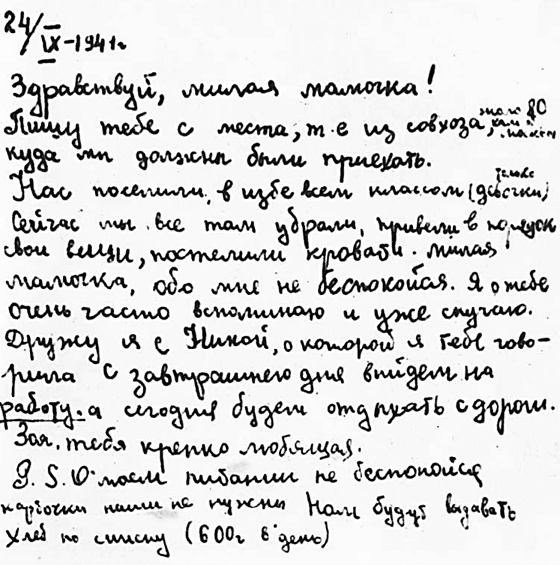 24/IX-1941г
Здравствуй, милая мамочка!
Пишу тебе с места, т.е из совхоза,
куда мы должны были приехать.
Нас поселили в избе всем классом (девочки)
Сейчас мы все там убрали, привели в порядок
свои вещи, постелили кровати. милая
мамочка, обо мне не беспокойся. Я о тебе
очень часто вспоминаю и уже скучаю.
Дружу я с Никой, о которой я тебе гово-
рила с завтрашнего дня выйдем на
работу. а сегодня будем отдыхать с дороги.
Зоя. тебя крепко любящая.
P.S. О моем питании не беспокойся
карточки наши не нужны Нам будут выдавать
хлеб по списку (600г в день)